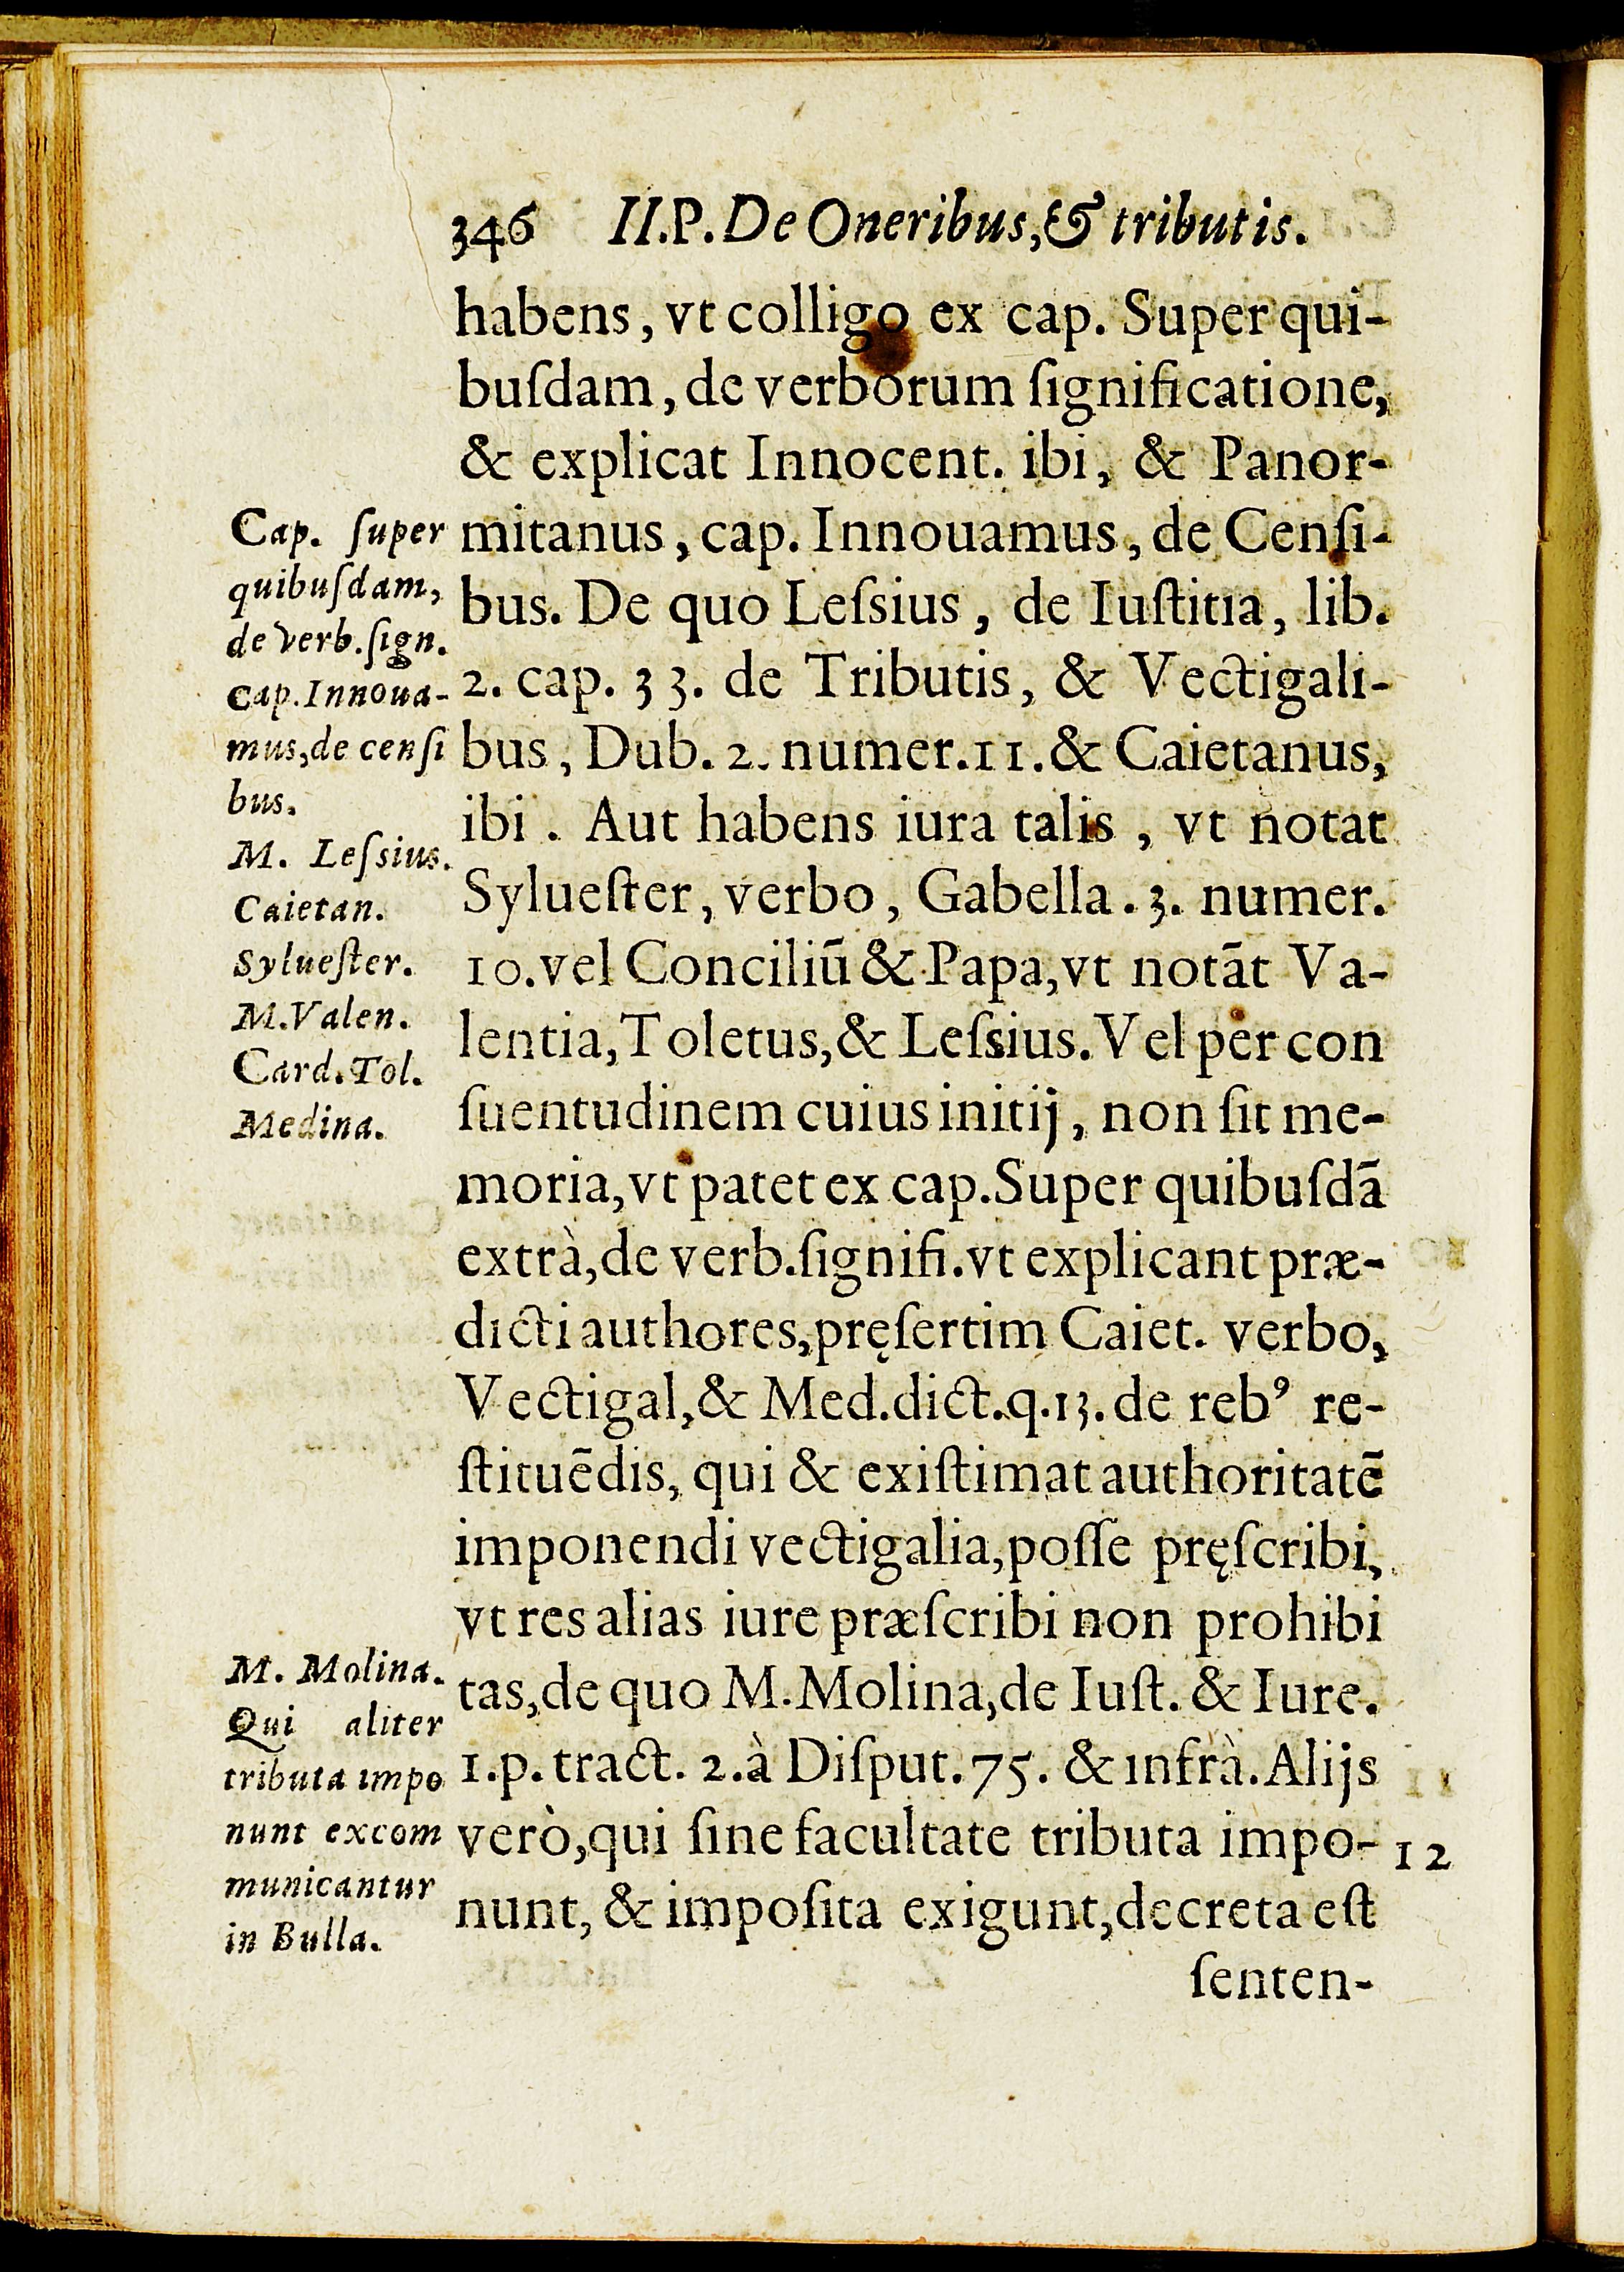 346 II.P. De Oneribus, & tributis.
habens, vt colligo ex cap. Super qui-
buſdam, de verborum ſignificatione,
& explicat Innocent. ibi, & Panor-
mitanus, cap. Innouamus, de Cenſi-
bus. De quo Leſsius, de Iuſtitia, lib.
2. cap. 33. de Tributis, & Vectigali-
bus, Dub. 2. numer. 11. & Caietanus,
ibi. Aut habens iura talis, vt notat
Sylueſter, verbo, Gabella. 3. numer.
10. vel Conciliū & Papa, vt notāt Va-
lentia, Toletus, & Leſsius. Vel per con
ſuentudinem cuius initij, non ſit me-
moria, vt patet ex cap. Super quibuſdā
extrà, de verb. ſignifi. vt explicant præ-
dicti authores, pręſertim Caiet. verbo,
Vectigal, & Med. dict. q. 13. de rebꝰ re-
ſtituēdis, qui & exiſtimat authoritatē
imponendi vectigalia, poſſe pręſcribi,
vt res alias iure præſcribi non prohibi
tas, de quo M. Molina, de Iuſt. & Iure.
1. p. tract. 2. à Diſput. 75. & infrà. Alijs
verò, qui ſine facultate tributa impo-
nunt, & impoſita exigunt, decreta eſt
ſenten-
Cap. ſuper
quibuſdam,
de verb. ſign.
cap. Innoua-
mus, de cenſi
bus.
M. Leſsius.
Caietan.
Sylueſter.
M. Valen.
Card. Tol.
Medina.
M. Molina.
Qui aliter
tributa impo
nunt excom
municantur
in Bulla.
12